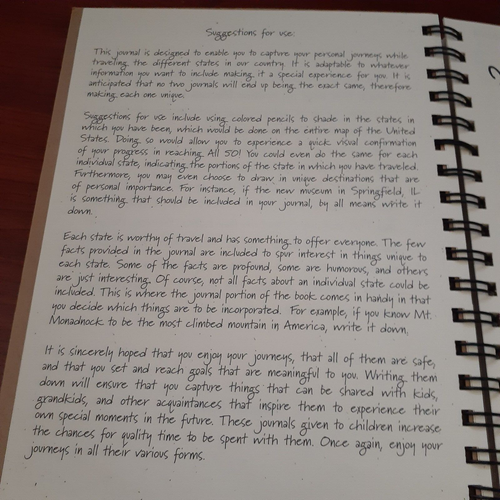 Suggestions for use:
This journal is designed to enable you to capture your personal journeys while
traveling the different states in our country. It is adaptable to whatever
information you want to include making it a special experience for you. It is
anticipated that no two journals will end up being the exact same, therefore
making each one unique.
Suggestions for use include using colored pencils to shade in the states in
which you have been, which would be done on the entire map of the United
States. Doing so would allow you to experience a quick visual confirmation
of your progress in reaching All 50! You could even do the same for each
individual state, indicating the portions of the state in which you have traveled.
Furthermore, you may even choose to draw in unique destinations that are
of personal importance. For instance, if the new museum in Springfield, IL
is something that should be included in your journal, by all means write it
down.
Each state is worthy of travel and has something to offer everyone. The few
facts provided in the journal are included to spur interest in things unique to
each state. Some of the facts are profound, some are humorous, and others
are just interesting. Of course, not all facts about an individual state could be
included. This is where the journal portion of the book comes in handy in that
you decide which things are to be incorporated. For example, if you know Mt.
Monadnock to be the most climbed mountain in America, write it down.
It is sincerely hoped that you enjoy your journeys, that all of them are safe,
and that you set and reach goals that are meaningful to you. Writing them
down will ensure that you capture things that can be shared with kids,
grandkids, and other acquaintances that inspire them to experience their
own special moments in the future. These journals given to children increase
the chances for quality time to be spent with them. Once again, enjoy your
journeys in all their various forms.